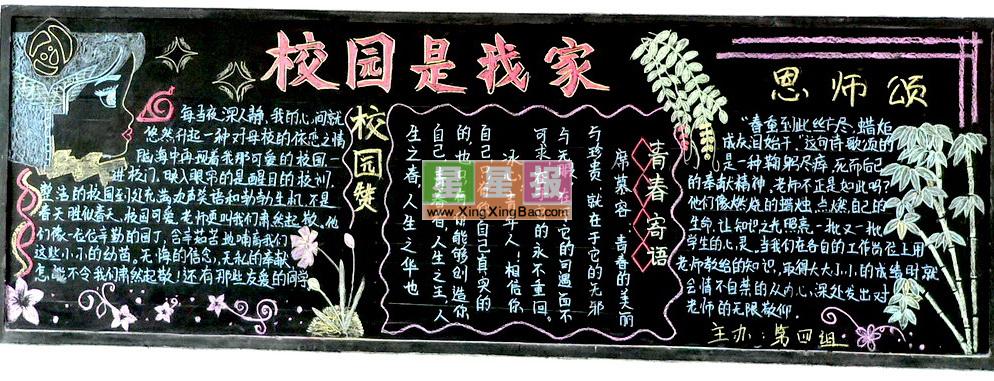 校园是我家
每当夜深人静,我的心间就
悠然升起一种对母校的依恋之情
脑海中再现着我那可爱的校园.
进校门,映入眼帘的是醒目的校训,
整洁的校园到处充满欢声笑语和勃勃生机,不是
春天胜似春天。校园可爱,老师更叫我们肃然起敬,他
们像一位位辛勤的园丁,含辛茹苦地哺育我们
这些小小的幼苗。无悔的信念,无私的奉献
怎能不令我们肃然起敬!还有那些友爱的同学
校园赞
青春寄语
席慕容:青春的美丽
与珍贵,就在于它的无邪
与无瑕 它的可遇而不
可求 在于 的永不重回。
冰心:青年人!相信你
自己 自己真实的
的 能够创造你
自己 人生之主人
生之春,人生之华也
星星报
www.XingXingBao.com
恩师颂
"春蚕到此丝方尽,蜡炬
成灰泪始干。"这句诗歌颂的
是一种鞠躬尽瘁,死而后已
的奉献精神。老师不正是如此吗?
他们像燃烧的蜡烛,点燃自己的
生命,让知识之光照亮一批又一批
学生的心灵。当我们在各自的工作岗位上用
老师教给的知识,取得大大小小的成绩时,就
会情不自禁的从内心深处发出对
老师的无限敬仰。
主办:第四组